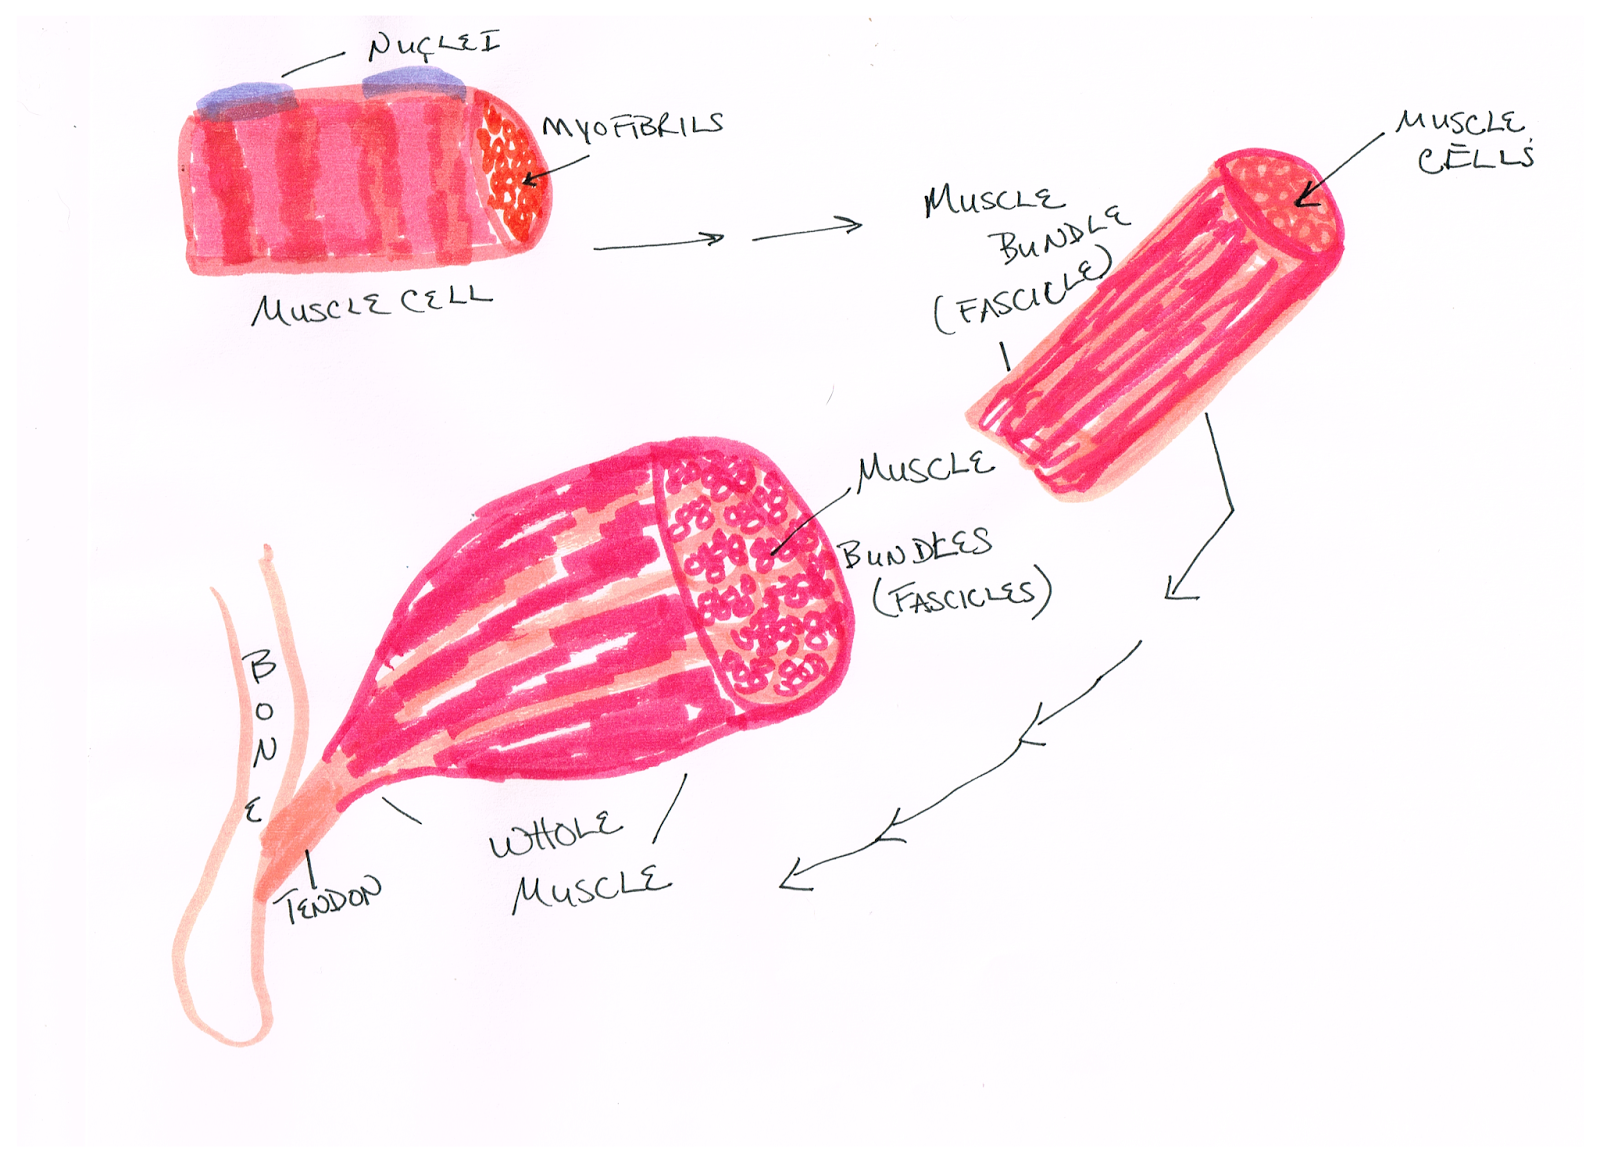 NUCLEI
MYOFIBRILS
MUSCLE CELL
MUSCLE
CELLS
MUSCLE
BUNDLE
(FASCICLE)
MUSCLE
BUNDLES
(FASCICLES)
BONE
TENDON
WHOLE
MUSCLE